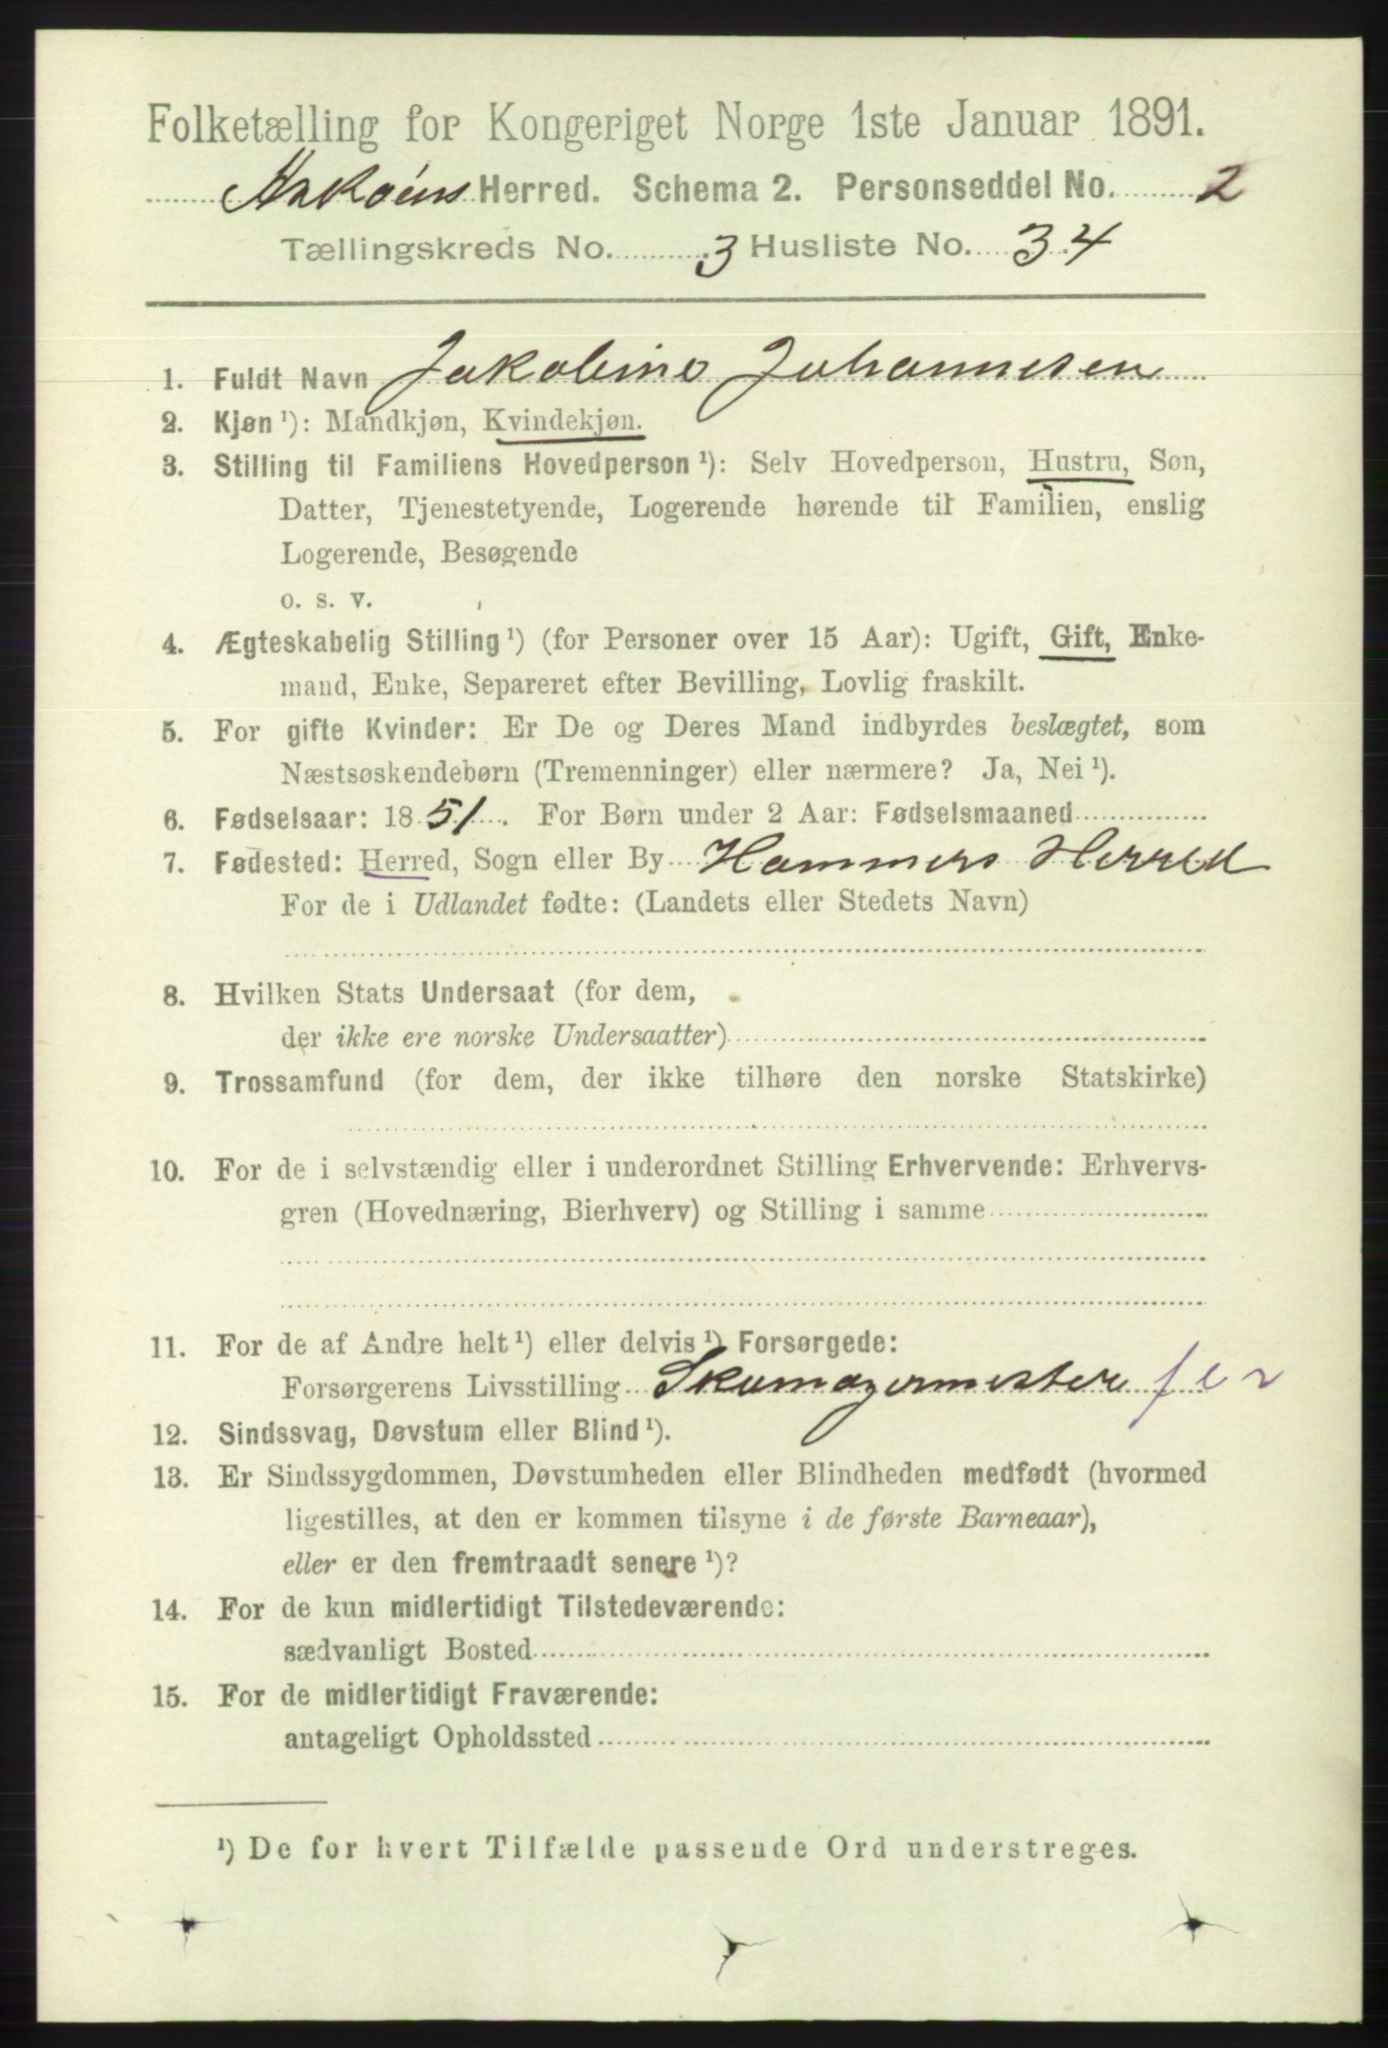 Folketælling for Kongeriget Norge 1ste Januar 1891.
Askøens Herred. Schema 2. Personseddel No. 2
Tællingskreds No. 3 Husliste No. 34
1. Fuldt Navn Jakobine Johannesen
2. Kjøn¹): Mandkjøn, Kvindekjøn.
3. Stilling til Familiens Hovedperson¹): Selv Hovedperson, Hustru, Søn,
Datter, Tjenestetyende, Logerende hørende til Familien, enslig
Logerende, Besøgende
o. s. v.
4. Ægteskabelig Stilling¹) (for Personer over 15 Aar): Ugift, Gift, Enke-
mand, Enke, Separeret efter Bevilling, Lovlig fraskilt.
5. For gifte Kvinder: Er De og Deres Mand indbyrdes beslægtet, som
Næstsøskendebørn (Tremenninger) eller nærmere? Ja, Nei¹).
6. Fødselsaar: 1851. For Børn under 2 Aar: Fødselsmaaned
7. Fødested: Herred, Sogn eller By Hammers Herred
For de i Udlandet fødte: (Landets eller Stedets Navn)
8. Hvilken Stats Undersaat (for dem,
der ikke ere norske Undersaatter)
9. Trossamfund (for dem, der ikke tilhøre den norske Statskirke)
10. For de i selvstændig eller i underordnet Stilling Erhvervende: Erhvervs-
gren (Hovednæring, Bierhverv) og Stilling i samme
11. For de af Andre helt¹) eller delvis¹) Forsørgede:
Forsørgerens Livsstilling Skomagermester
12. Sindssvag, Døvstum eller Blind¹).
13. Er Sindssygdommen, Døvstumheden eller Blindheden medfødt (hvormed
ligestilles, at den er kommen tilsyne i de første Barneaar),
eller er den fremtraadt senere¹)?
14. For de kun midlertidigt Tilstedeværende:
sædvanligt Bosted
15. For de midlertidigt Fraværende:
antageligt Opholdssted
¹) De for hvert Tilfælde passende Ord understreges.